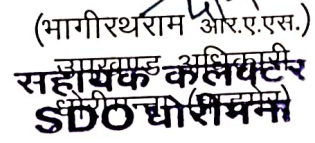 (भागीरथराम आर.ए.एस.)
उपखण्ड अधिकारी
सहायक कलेक्टर
धोरीमन्ना (बाड़मेर)
SDO धोरीमन्ना